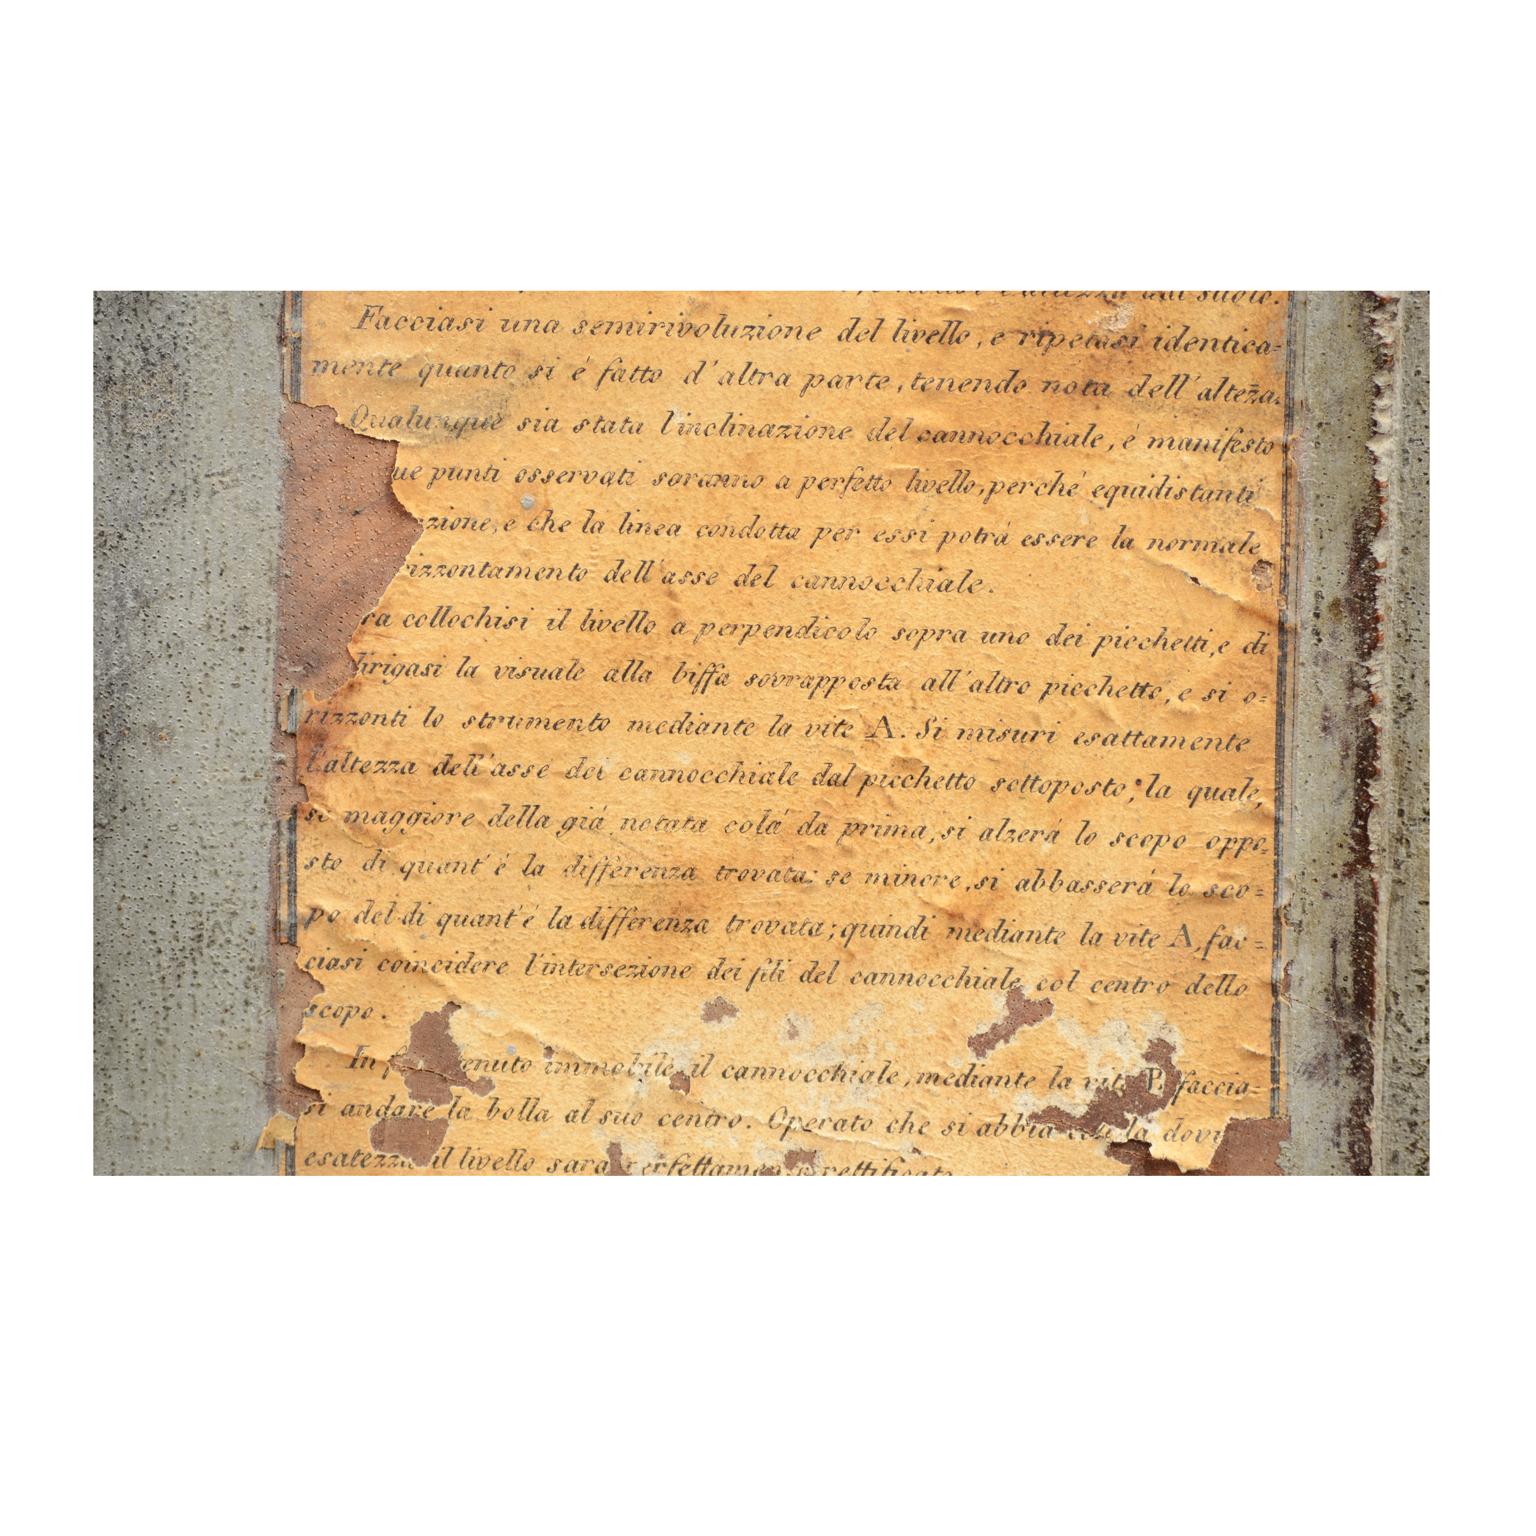 l'altezza dal suolo.
Facciasi una semirivoluzione del livello, e ripetasi identica=
mente quanto si é fatto d'altra parte, tenendo nota dell'altezza.
Qualunque sia stata l'inclinazione del cannocchiale, é manifesto
ue punti osservati saranno a perfetto livello, perché equidistanti
zione, e che la linea condotta per essi potrá essere la normale
rizzontamento dell'asse del cannocchiale.
ra collochisi il livello a perpendicolo sopra uno dei picchetti, e di
dirigasi la visuale alla biffa sovrapposta all'altro picchetto, e si o=
rizzonti lo strumento mediante la vite A. Si misuri esattamente
l'altezza dell'asse del cannocchiale dal picchetto sottoposto; la quale,
se maggiore della giá notata colá da prima, si alzerá lo scopo oppo=
sto di quant'é la differenza trovata: se minore, si abbasserá lo sco=
po del di quant'é la differenza trovata; quindi mediante la vite A, fac=
ciasi coincidere l'intersezione dei fili del cannocchiale col centro dello
scopo.
In enuto immobile il cannocchiale, mediante la vite P. faccia=
si andare la bolla al suo centro. Operato che si abbia con la dovu
esatezza il livello sara perfettamente rettificato